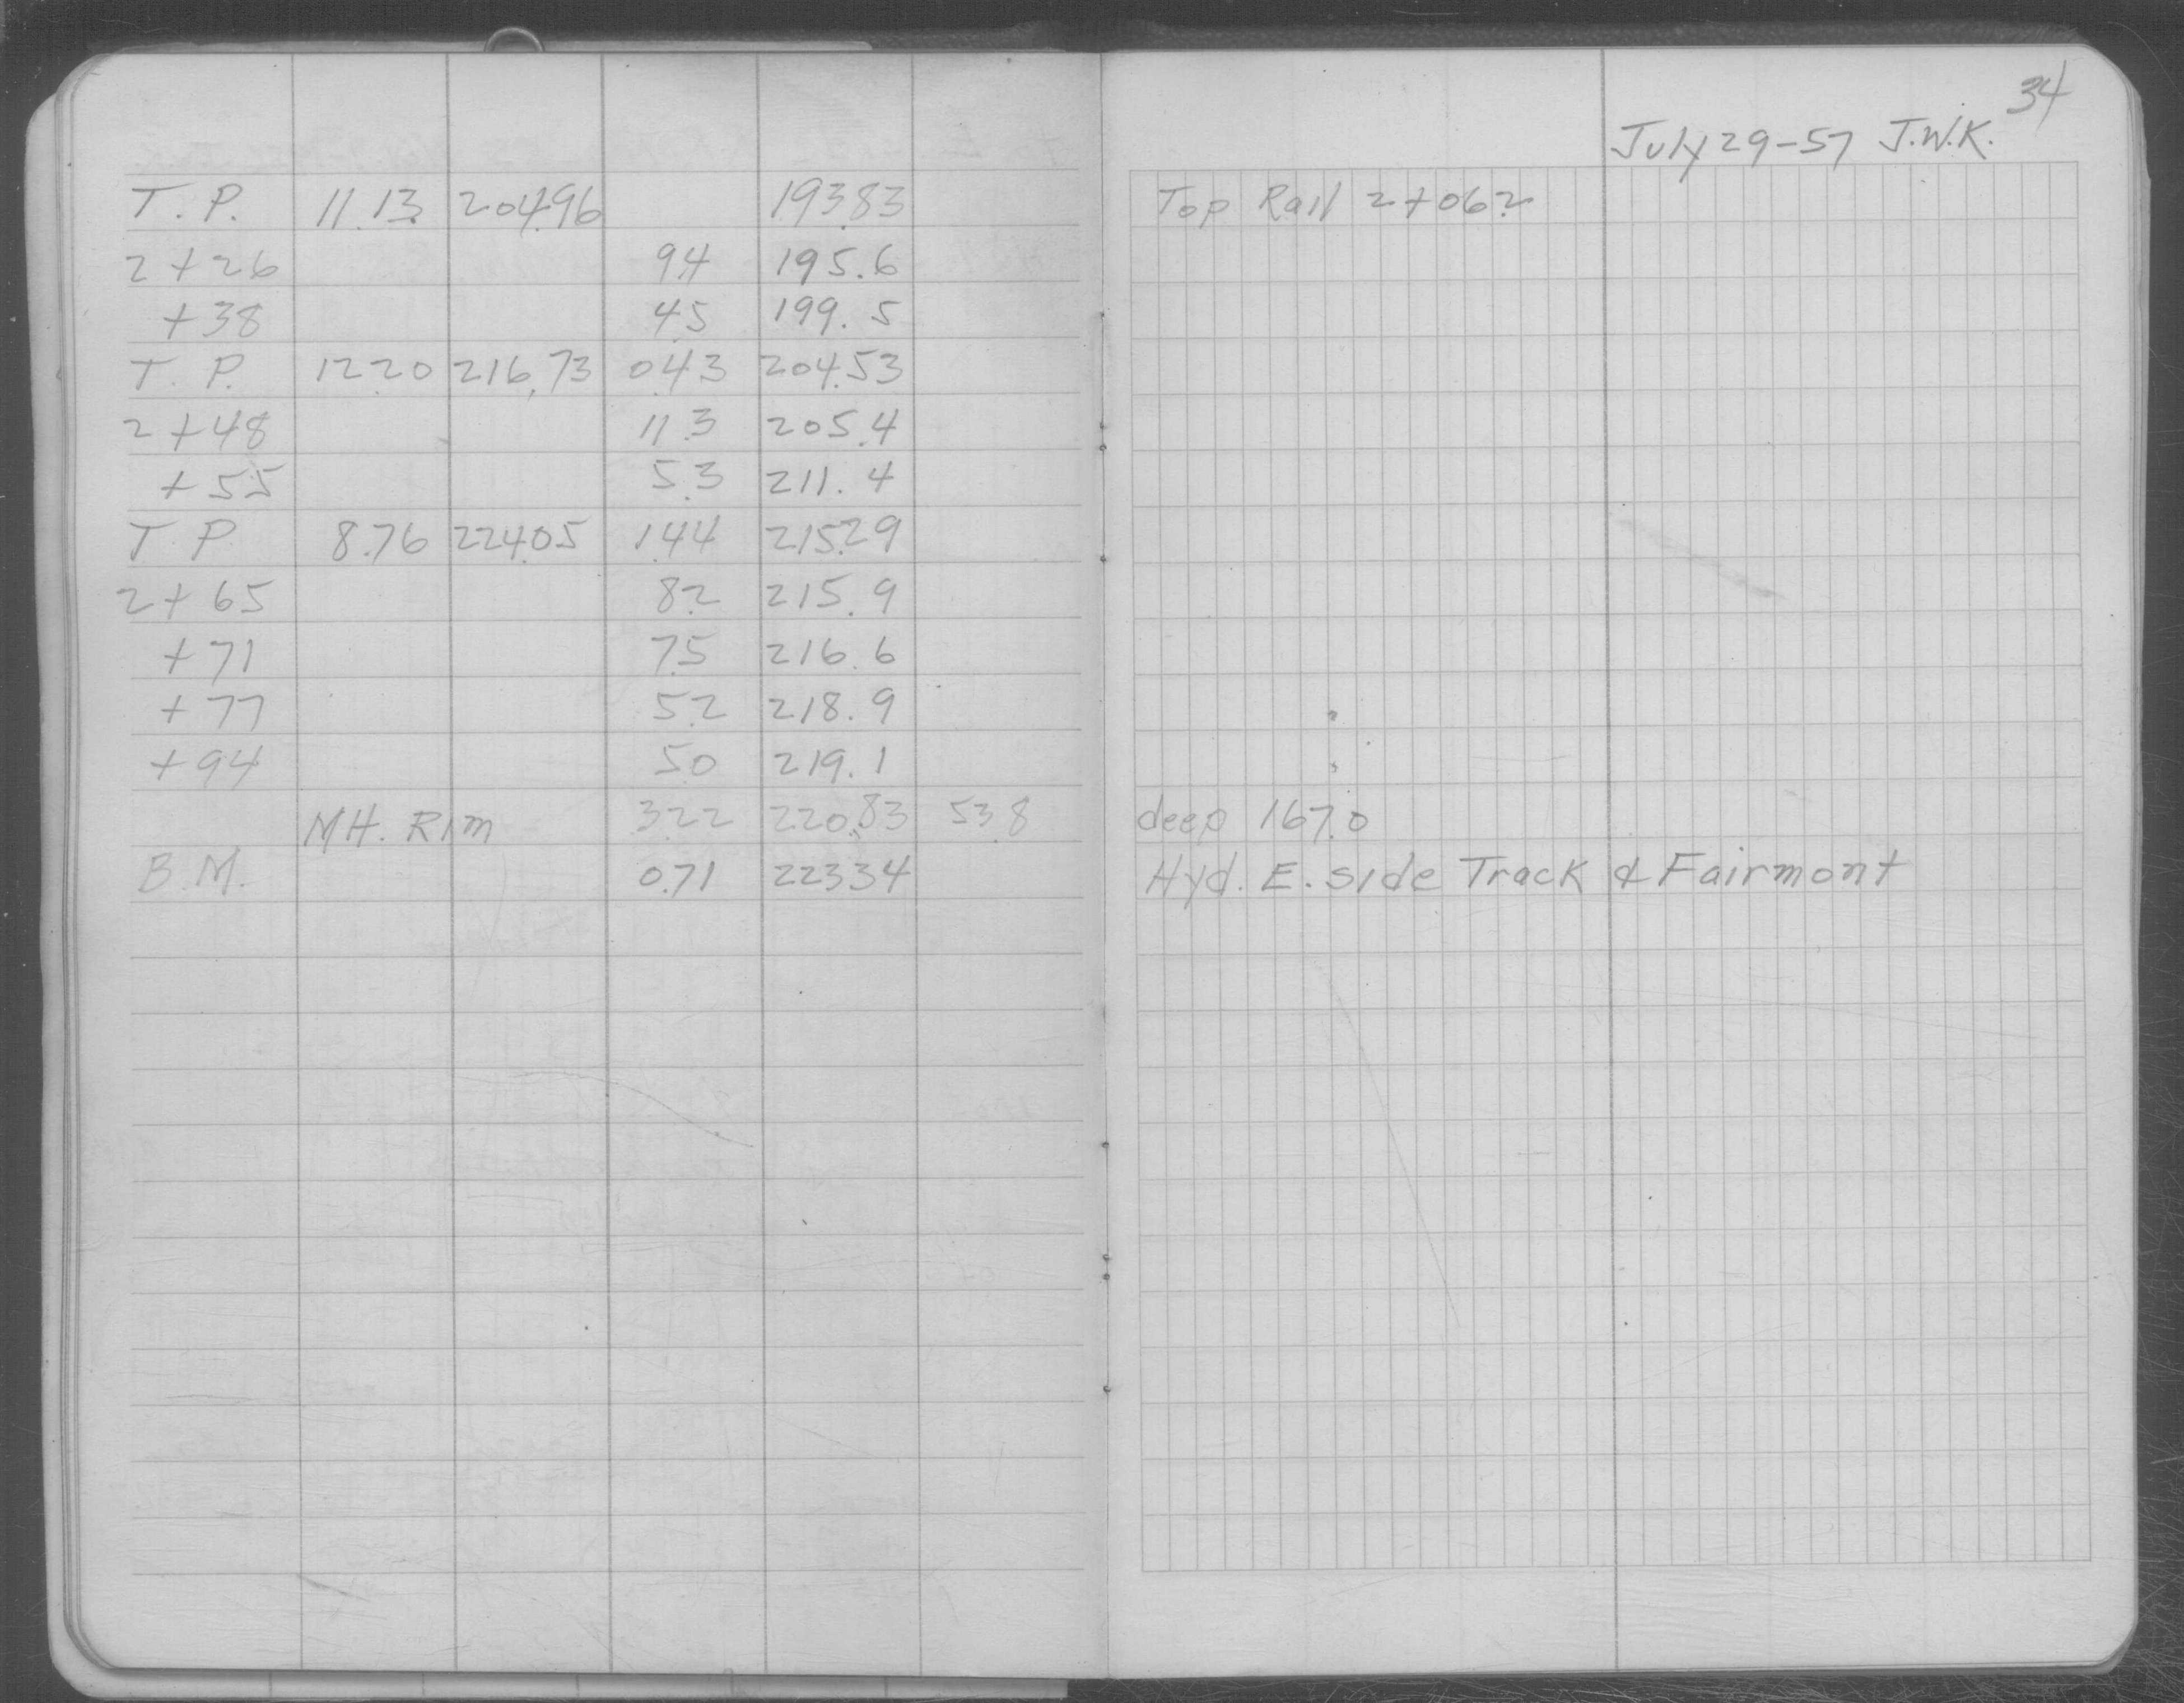 34
July 29-57 J.W.K.
T.P. 11.13 204.96 193.83 Top Rail 2+06.2
2+26 9.4 195.6
+38 4.5 199.5
T.P. 12.20 216.73 0.43 204.53
2+48 11.3 205.4
+55 5.3 211.4
T.P. 8.76 224.05 1.44 215.29
2+65 8.2 215.9
+71 7.5 216.6
+77 5.2 218.9
+94 5.0 219.1
MH. Rim 3.22 220.83 53.8 deep 167.0
B.M. 0.71 223.34 Hyd. E. side Track & Fairmont